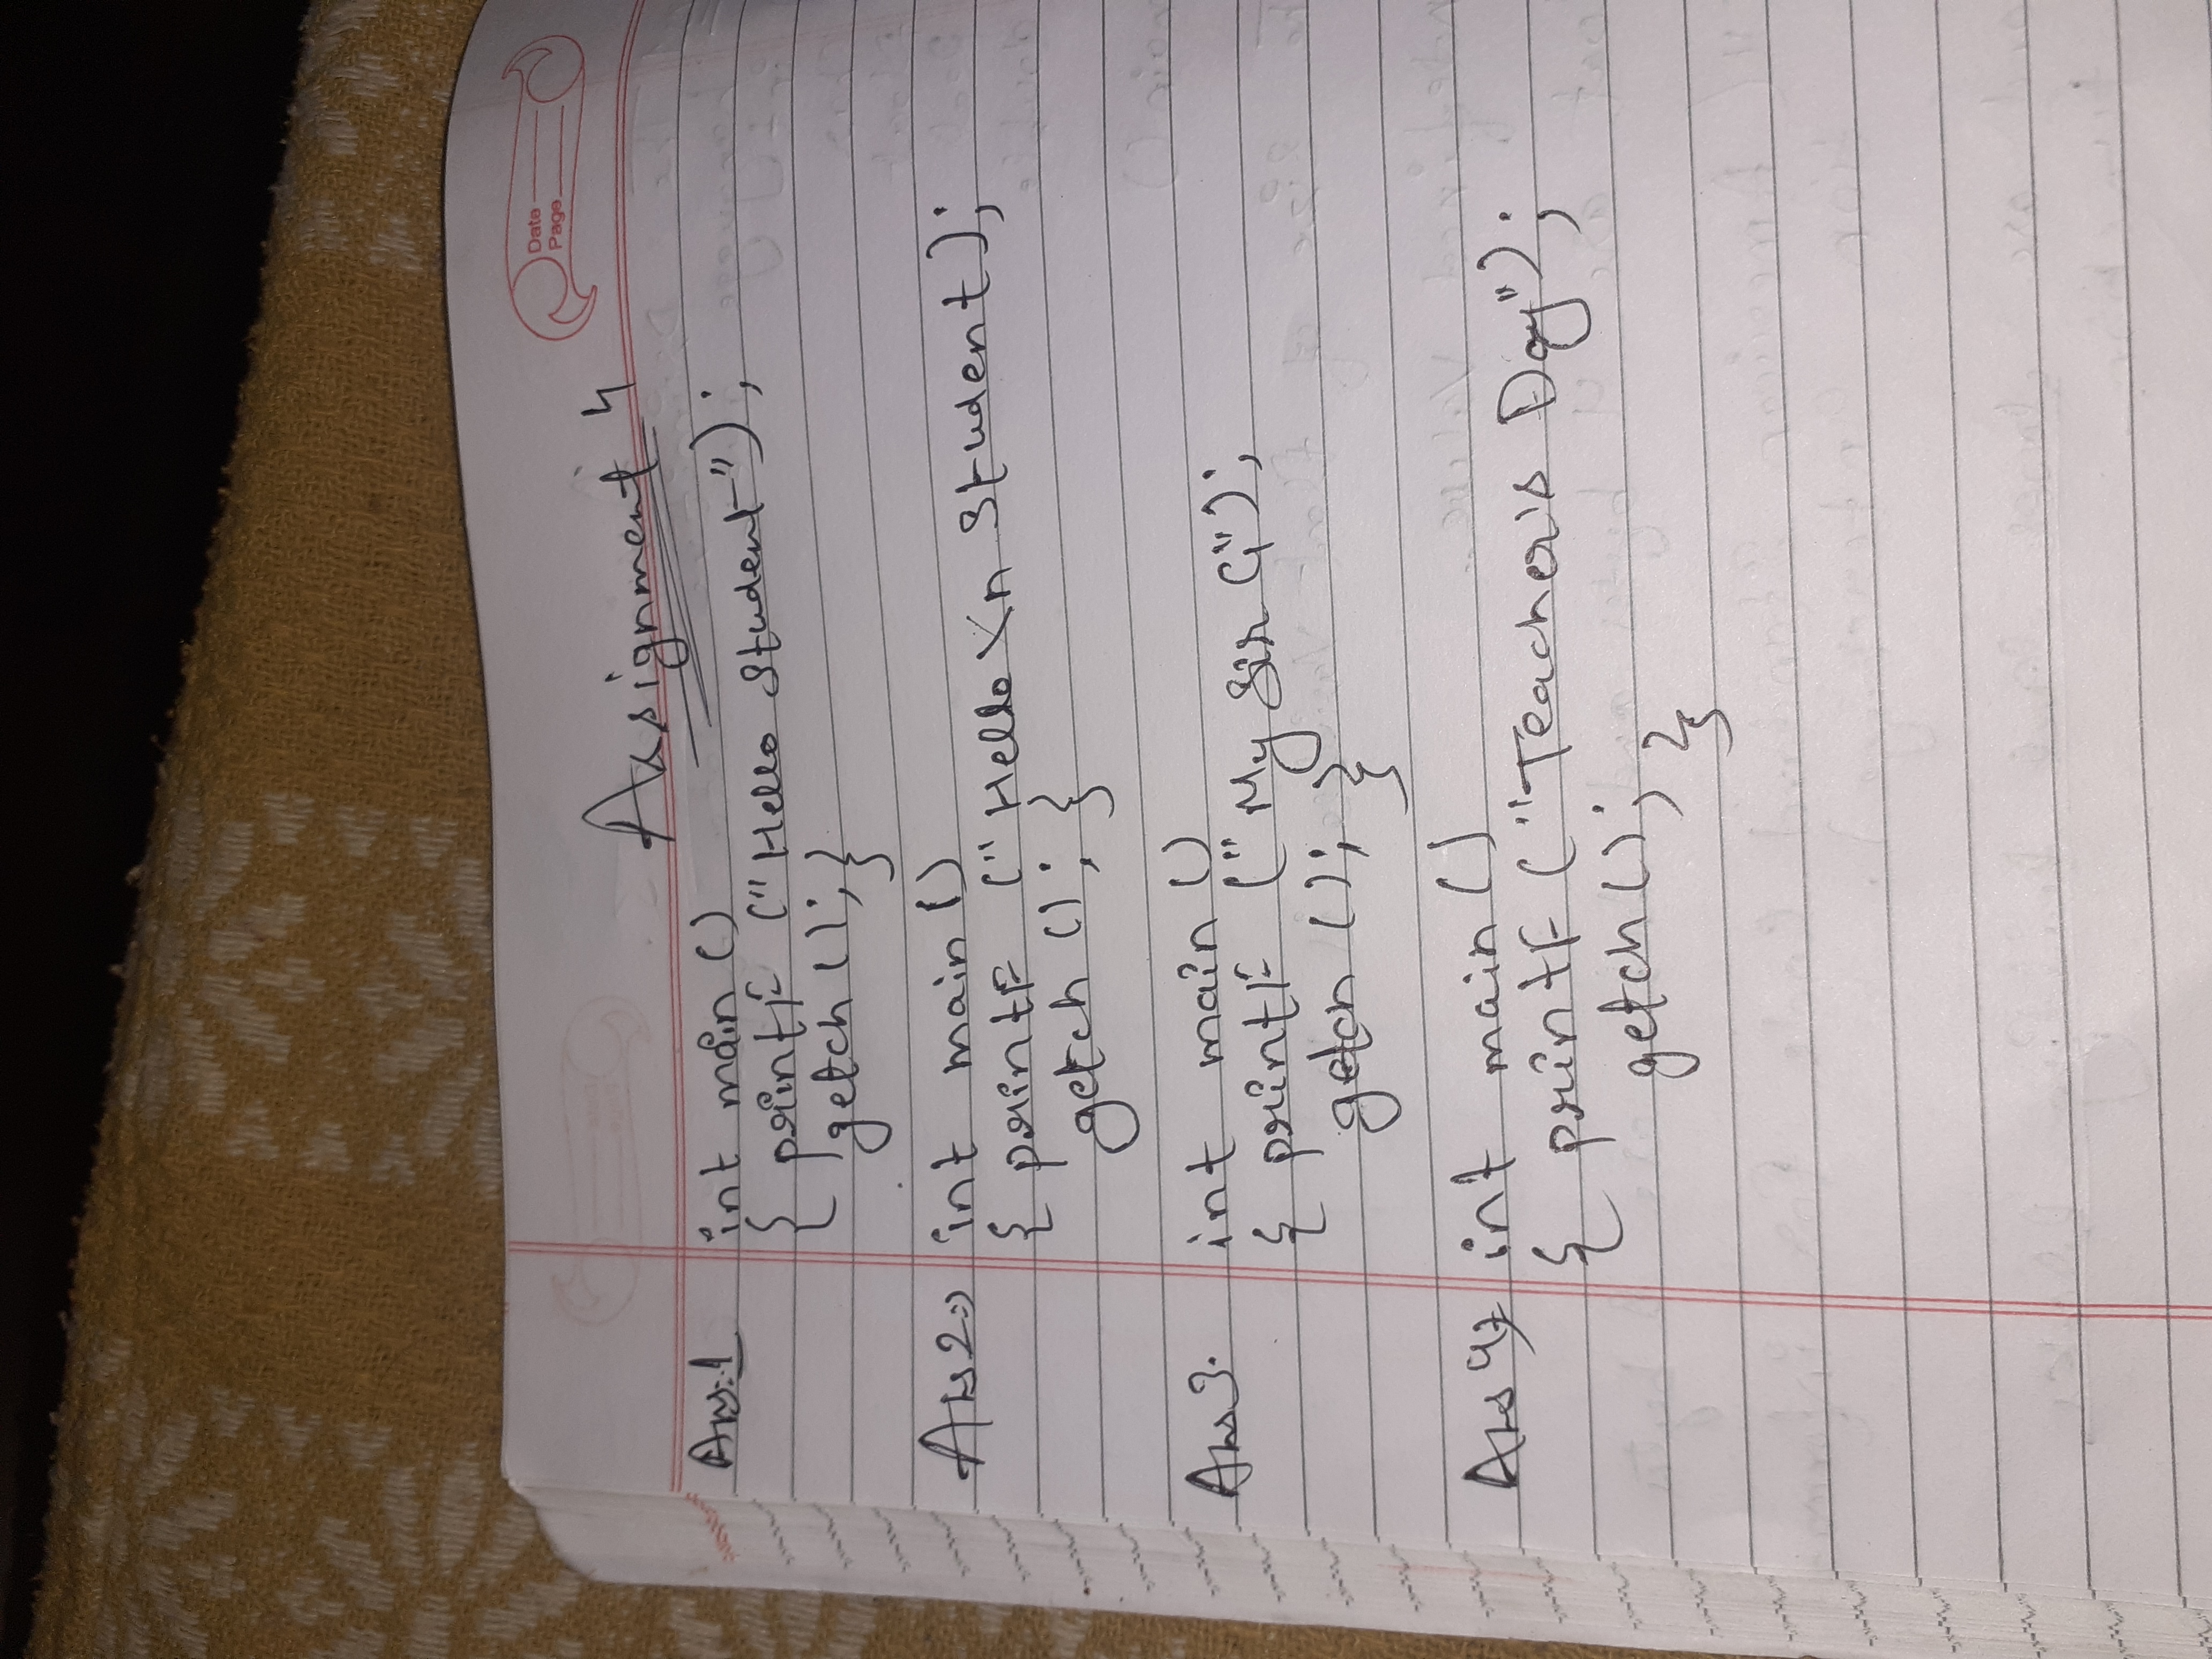 Date
Page
Assignment 4
Ans:1 int main ()
{ printf ("Hello Student");
getch (); }
Ans 2:) int main ()
{ printf ("Hello \n Student);
getch (); }
Ans 3. int main ()
{ printf ("My Sir G");
getch (); }
Ans 4) int main ()
{ printf ("Teacher's Day");
getch (); }